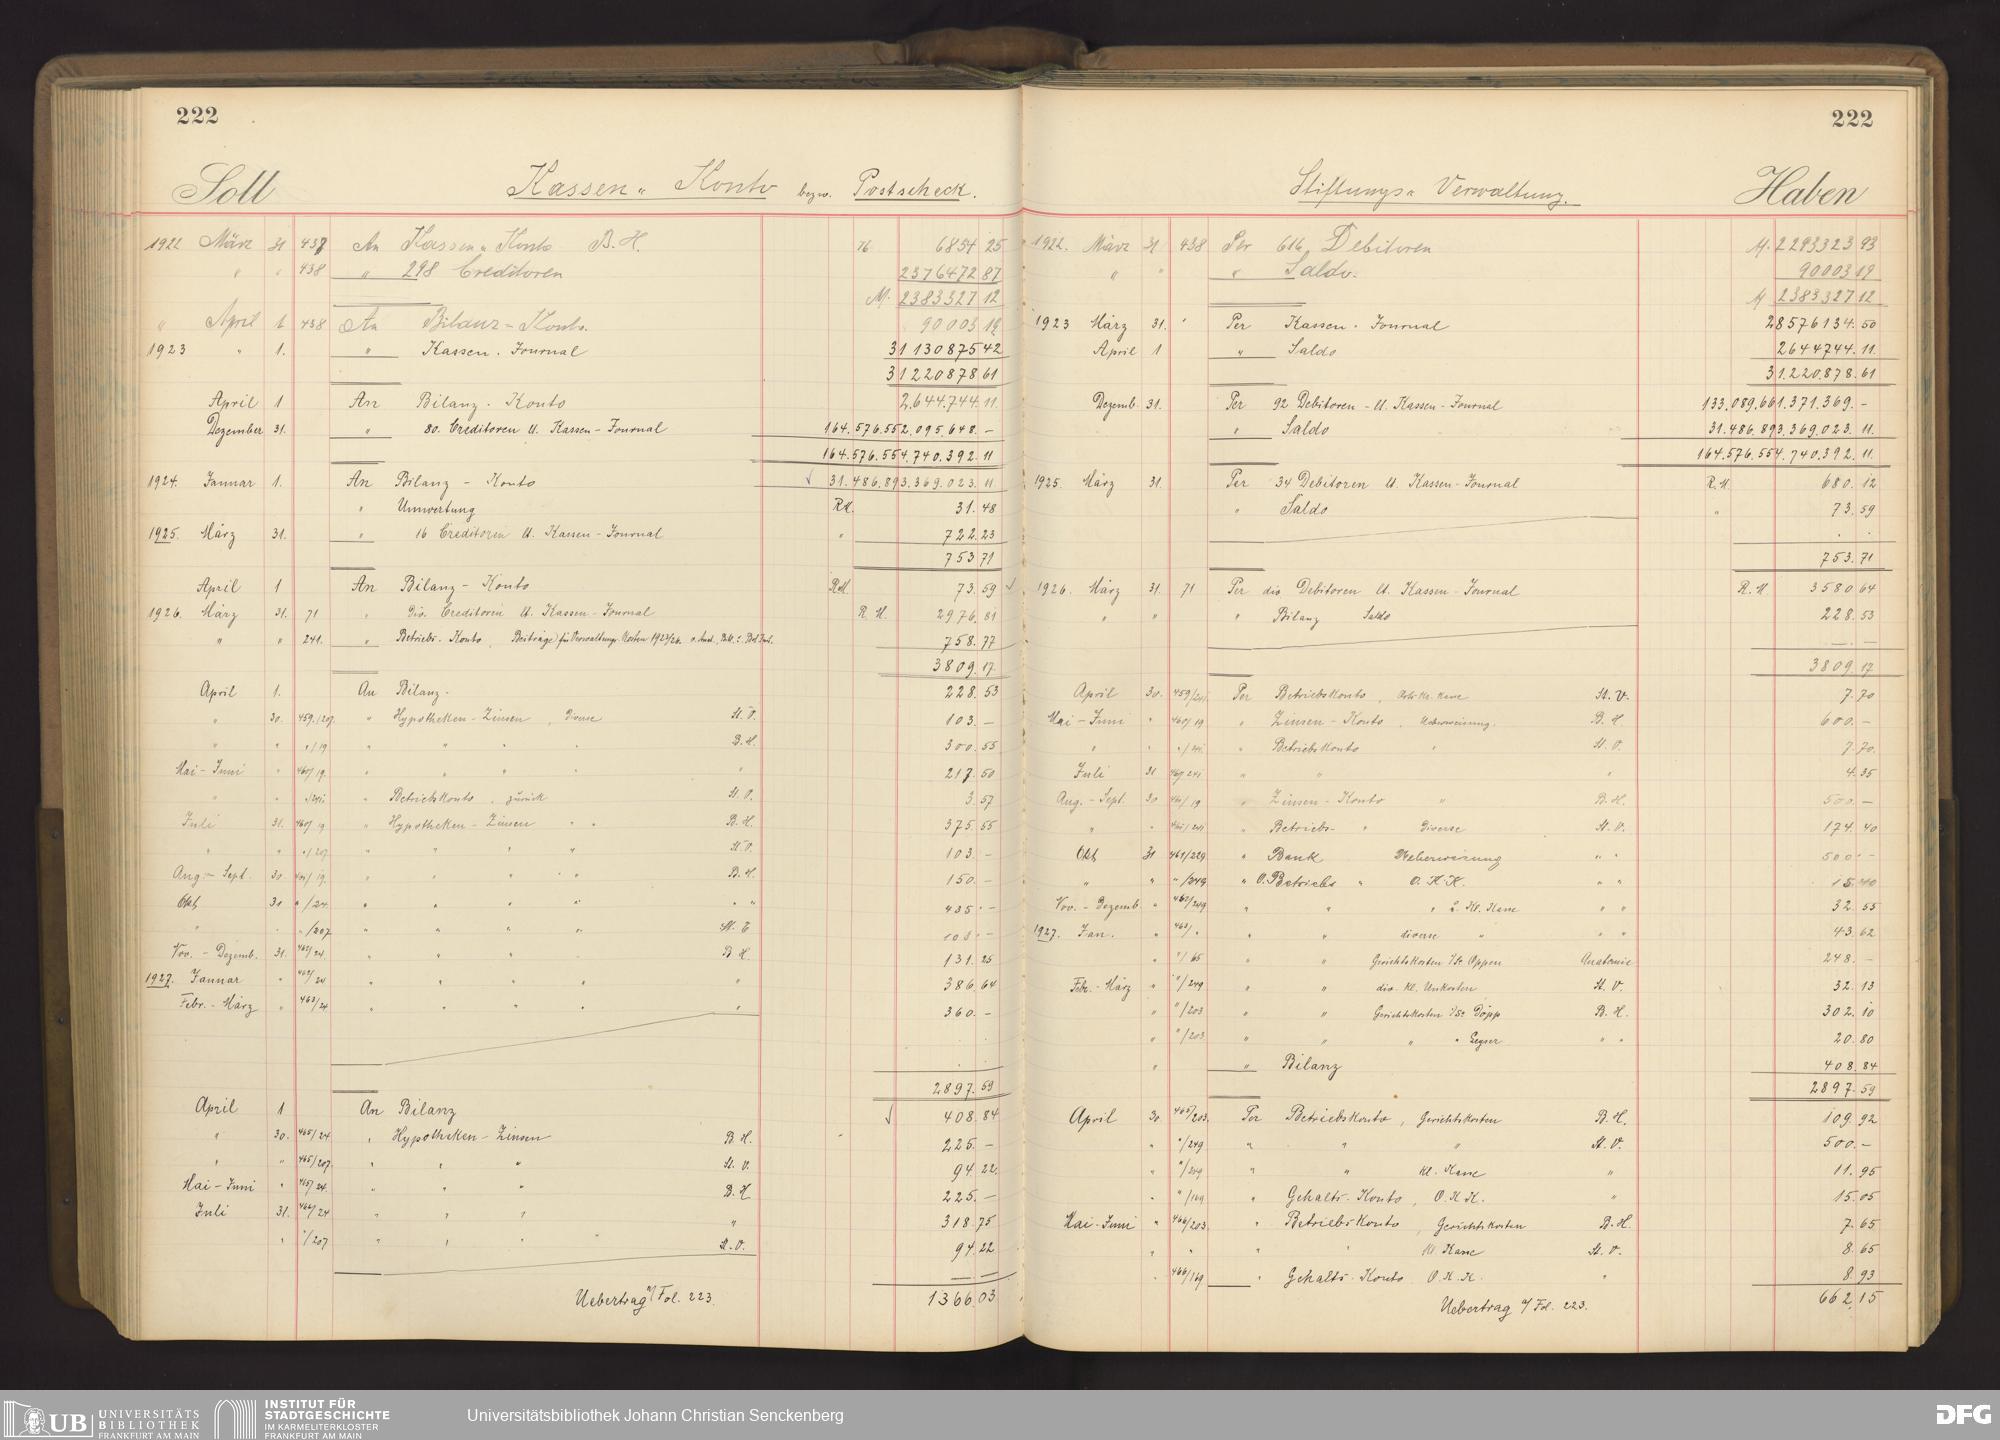 222
Soll
Kassen- Konto bezw. Postscheck.
1922 März 31 437 An Kassen-Konto B. H. 76 6854 25
" " 438 " 298 Creditoren 2376472 87
M. 2383327 12
" April 1 438 An Bilanz-Konto. 90003 19
1923 " 1. " Kassen-Journal 31130875 42
31220878 61
April 1 An Bilanz-Konto 2.644.744. 11.
Dezember 31. " 80. Creditoren u. Kassen-Journal 164.576.552.095.648. -
164.576.554.740.392. 11
1924. Januar 1. An Bilanz-Konto 31.486.893.369.023. 11
" Umwertung RM. 31. 48
1925. März 31. " 16 Creditoren u. Kassen-Journal " 722. 23
753 71
April 1 An Bilanz-Konto RM. 73. 59
1926. März 31. 71 " Div. Creditoren u. Kassen-Journal R.M. 2976. 81
" " 241. " Betriebs-Konto, Beiträge für Verwaltungs-Kosten 758. 77
3809. 17.
April 1. An Bilanz. 228. 53
" 30. 459./207. " Hypotheken-Zinsen, Diverse St. V. 103. -
" " "/19 " " " " B. H. 300. 55
Mai-Juni " 460/19. " " " " " 217. 50
" " "/241 " Betriebskonto, zurück St. V. 3. 57
Juli 31. 460/19 " Hypotheken-Zinsen " " B. H. 375. 55
" " "/207 " " " " St. V. 103. -
Aug.-Sept. 30 461/19. " " " " " B. H. 150. -
Okt 30 "/24. " " " " " " 435. -
" . "/207 " " " " St. V. 103. -
Nov.-Dezemb. 31. 462/24. " " " B. H. 131. 25
1927. Januar " 462/24 " " " " " 386. 64
Febr.-März " 463/24 " " " " " 360. -
2897. 59
April 1 An Bilanz 408. 84
" 30. 465/24 " Hypotheken-Zinsen B. H. 225. -
" " 465/207. " " " St. V. 94. 22.
Mai-Juni " 465/24. " " " B. H 225. -
Juli 31. 466/24 " " " " 318. 75
" "/207 " " " " St. V. 94. 22
Uebertrag a/ Fol. 223. 1366. 03
222
Stiftungs-Verwaltung.
Haben
1922. März 31 438 Per 616 Debitoren M. 2293323 93
" " " Saldo. 90003 19
M 2383327 12
1923 März 31. " Per Kassen-Journal 28576134. 50
April 1 " Saldo 2644744. 11.
31.220.878. 61
Dezemb. 31. Per 92 Debitoren-u. Kassen-Journal 133.089.661.371.369. -
" Saldo 31.486.893.369.023. 11.
164.576.554.740.392. 11.
1925. März 31. Per 34 Debitoren u. Kassen-Journal R.M. 680. 12
" Saldo " 73. 59
753. 71
1926. März 31. 71 Per div Debitoren u. Kassen-Journal R.M 3580 64
" " " Bilanz Saldo 228. 53
3809. 17
April 30. 459/241. Per Betriebskonto, St. V. 7. 70
Mai-Juni " 460/19. " Zinsen-Konto, Ueberweisung. B. H. 600. -
" " "/241 " Betriebskonto " St. V. 7. 70.
Juli 31 460/241 " " " 4. 35
Aug.-Sept. 30 461/19 " Zinsen-Konto " B. H. 500. -
" " 461/241 " Betriebs- " Diverse St. V. 174. 40
Okt 31 461/229 " Bank Ueberweisung " " 500. -
" " "/249 " O. Betriebs " O. K. K. " " 15. 40
Nov.-Dezemb. " 462/249 " " " Kl. Kasse " " 32. 55
1927. Jan. " 463/" " " diverse " " " 43. 62
" "/65 " " Gerichtskosten i/Sa Oppen Anatomie 248. -
Febr.-März " "/249 " " div. kl. Unkosten St. V. 32. 13
" "/203 " " Gerichtskosten i/Sa Döpp B. H. 302. 10
" "/203. " " " " Geyser " " 20. 80
" " Bilanz 408. 84
2897. 59
April 30 465/203. Per Betriebskonto, Gerichtskosten B. H. 109. 92
" "/249 " " " St. V. 500. -
" "/249 " " Kl. Kasse " 11. 95
" "/169 " Gehalts-Konto, O. K. K. " 15. 05
Mai-Juni " 466/203. " Betriebskonto, Gerichtskosten B. H. 7. 65
" " " " Kl. Kasse St. V. 8. 65
" 466/169 " Gehalts-Konto O. K. K. " 8. 93
Uebertrag a/ Fol. 223. 662. 15
UB UNIVERSITÄTS BIBLIOTHEK FRANKFURT AM MAIN
INSTITUT FÜR STADTGESCHICHTE IM KARMELITERKLOSTER FRANKFURT AM MAIN
Universitätsbibliothek Johann Christian Senckenberg
DFG